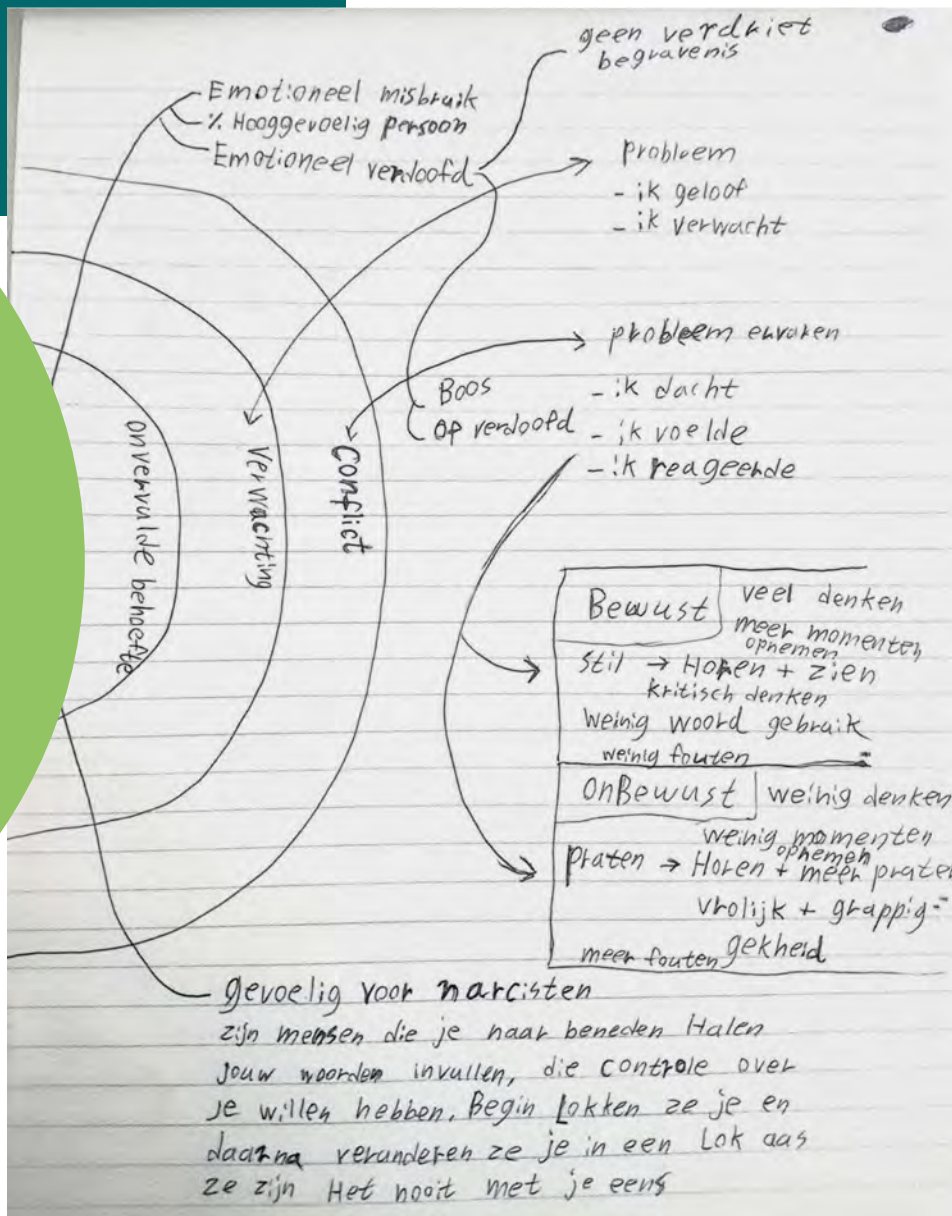 geen verdriet
begravenis
Emotioneel misbruik
% Hooggevoelig persoon
Emotioneel verdoofd
probleem
- ik geloof
- ik verwacht
probleem ervaren
Boos
op verdoofd
- ik dacht
- ik voelde
- ik reageerde
onvervulde behoefte
Verwachting
Conflict
Bewust
veel denken
meer momenten
opnemen
Stil → Horen + zien
kritisch denken
weinig woord gebruik
weinig fouten
OnBewust
weinig denken
weinig momenten
opnemen
praten → Horen + meer praten
vrolijk + grappig
meer fouten gekheid
gevoelig voor narcisten
zijn mensen die je naar beneden Halen
jouw woorden invullen, die controle over
je willen hebben. Begin Lokken ze je en
daarna veranderen ze je in een Lok aas
ze zijn Het nooit met je eens